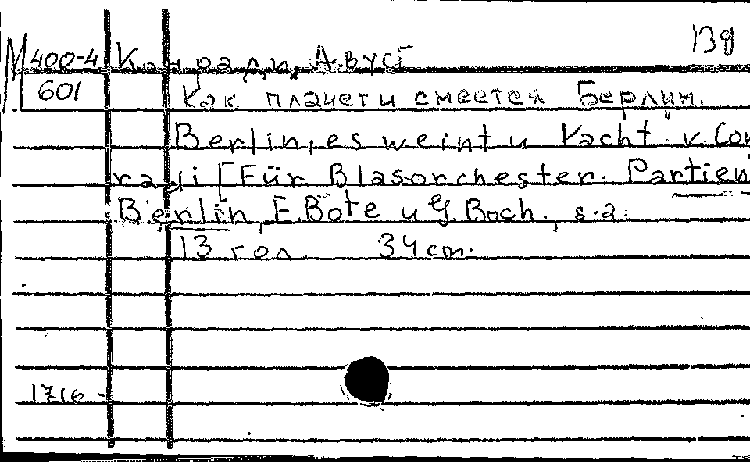 Вд
М 400-4 Конради, Август
601 Как плачет и смеется Берлин.
Berlin, es weint u. lacht v. Con
radi [Für Blasorchester. Partien
Berlin, E. Bote u. G. Boch., s.a.
13 гол. 34 cm.
1716